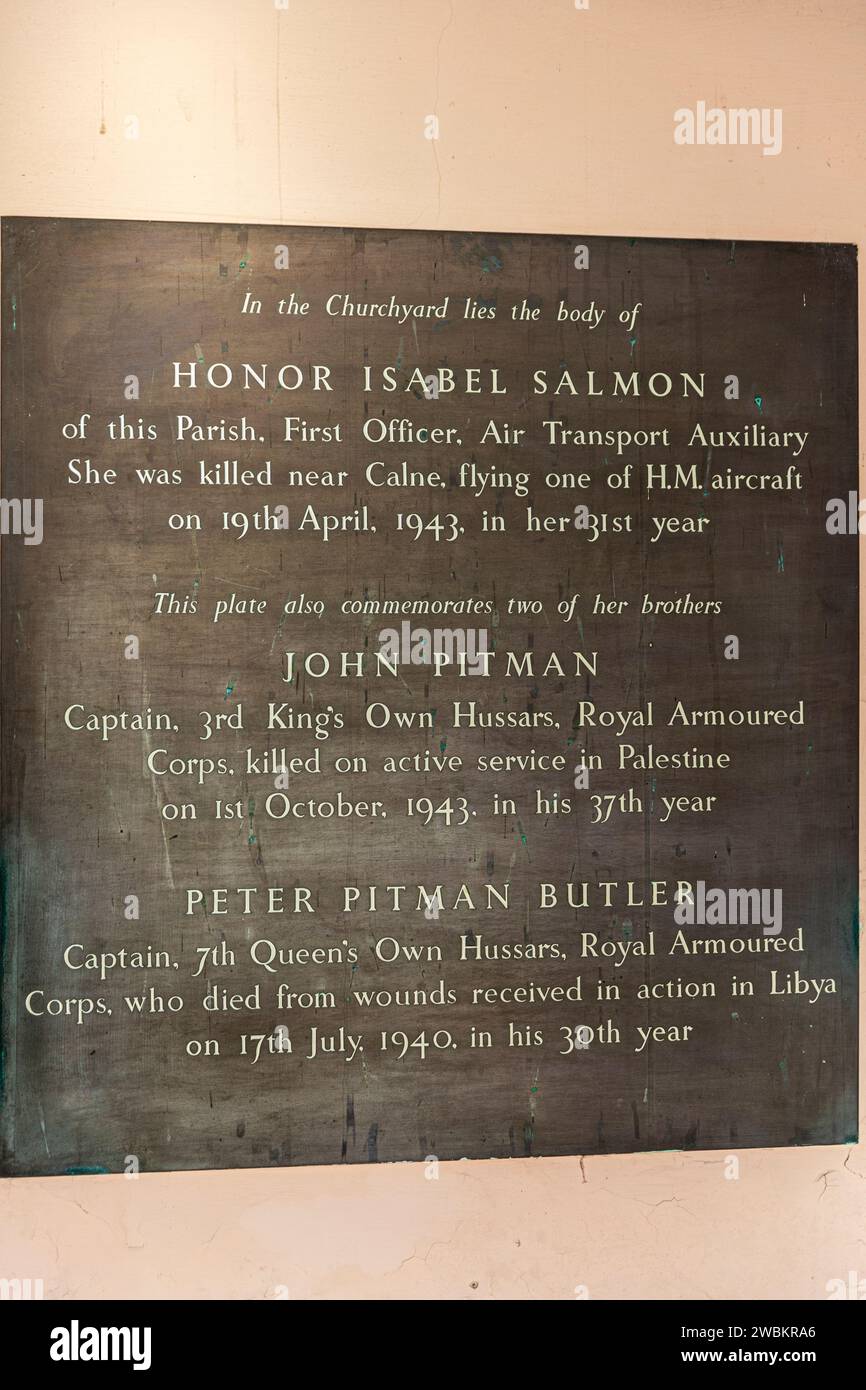 alamy
In the Churchyard lies the body of
HONOR ISABEL SALMON
of this Parish, First Officer, Air Transport Auxiliary
She was killed near Calne, flying one of H.M. aircraft
on 19th April, 1943, in her 31st year
This plate also commemorates two of her brothers
JOHN PITMAN
Captain, 3rd King's Own Hussars, Royal Armoured
Corps, killed on active service in Palestine
on 1st October, 1943, in his 37th year
PETER PITMAN BUTLER
Captain, 7th Queen's Own Hussars, Royal Armoured
Corps, who died from wounds received in action in Libya
on 17th July, 1940, in his 30th year
alamy
Image ID: 2WBKRA6
www.alamy.com